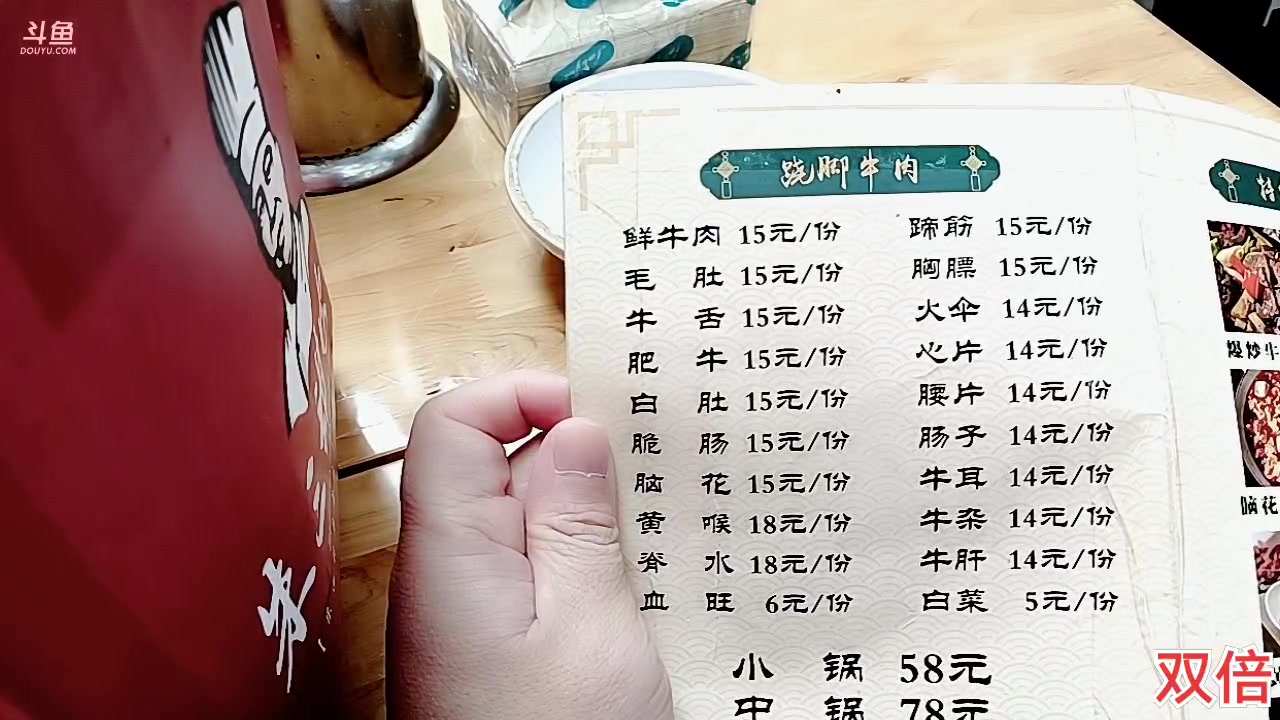 斗鱼
DOUYU.COM
跷脚牛肉
鲜牛肉 15元/份
毛肚 15元/份
牛舌 15元/份
肥牛 15元/份
白肚 15元/份
脆肠 15元/份
脑花 15元/份
黄喉 18元/份
脊水 18元/份
血旺 6元/份
蹄筋 15元/份
胸膘 15元/份
火伞 14元/份
心片 14元/份
腰片 14元/份
肠子 14元/份
牛耳 14元/份
牛杂 14元/份
牛肝 14元/份
白菜 5元/份
小锅 58元
中锅 78元
特
爆炒牛
脑花
双倍